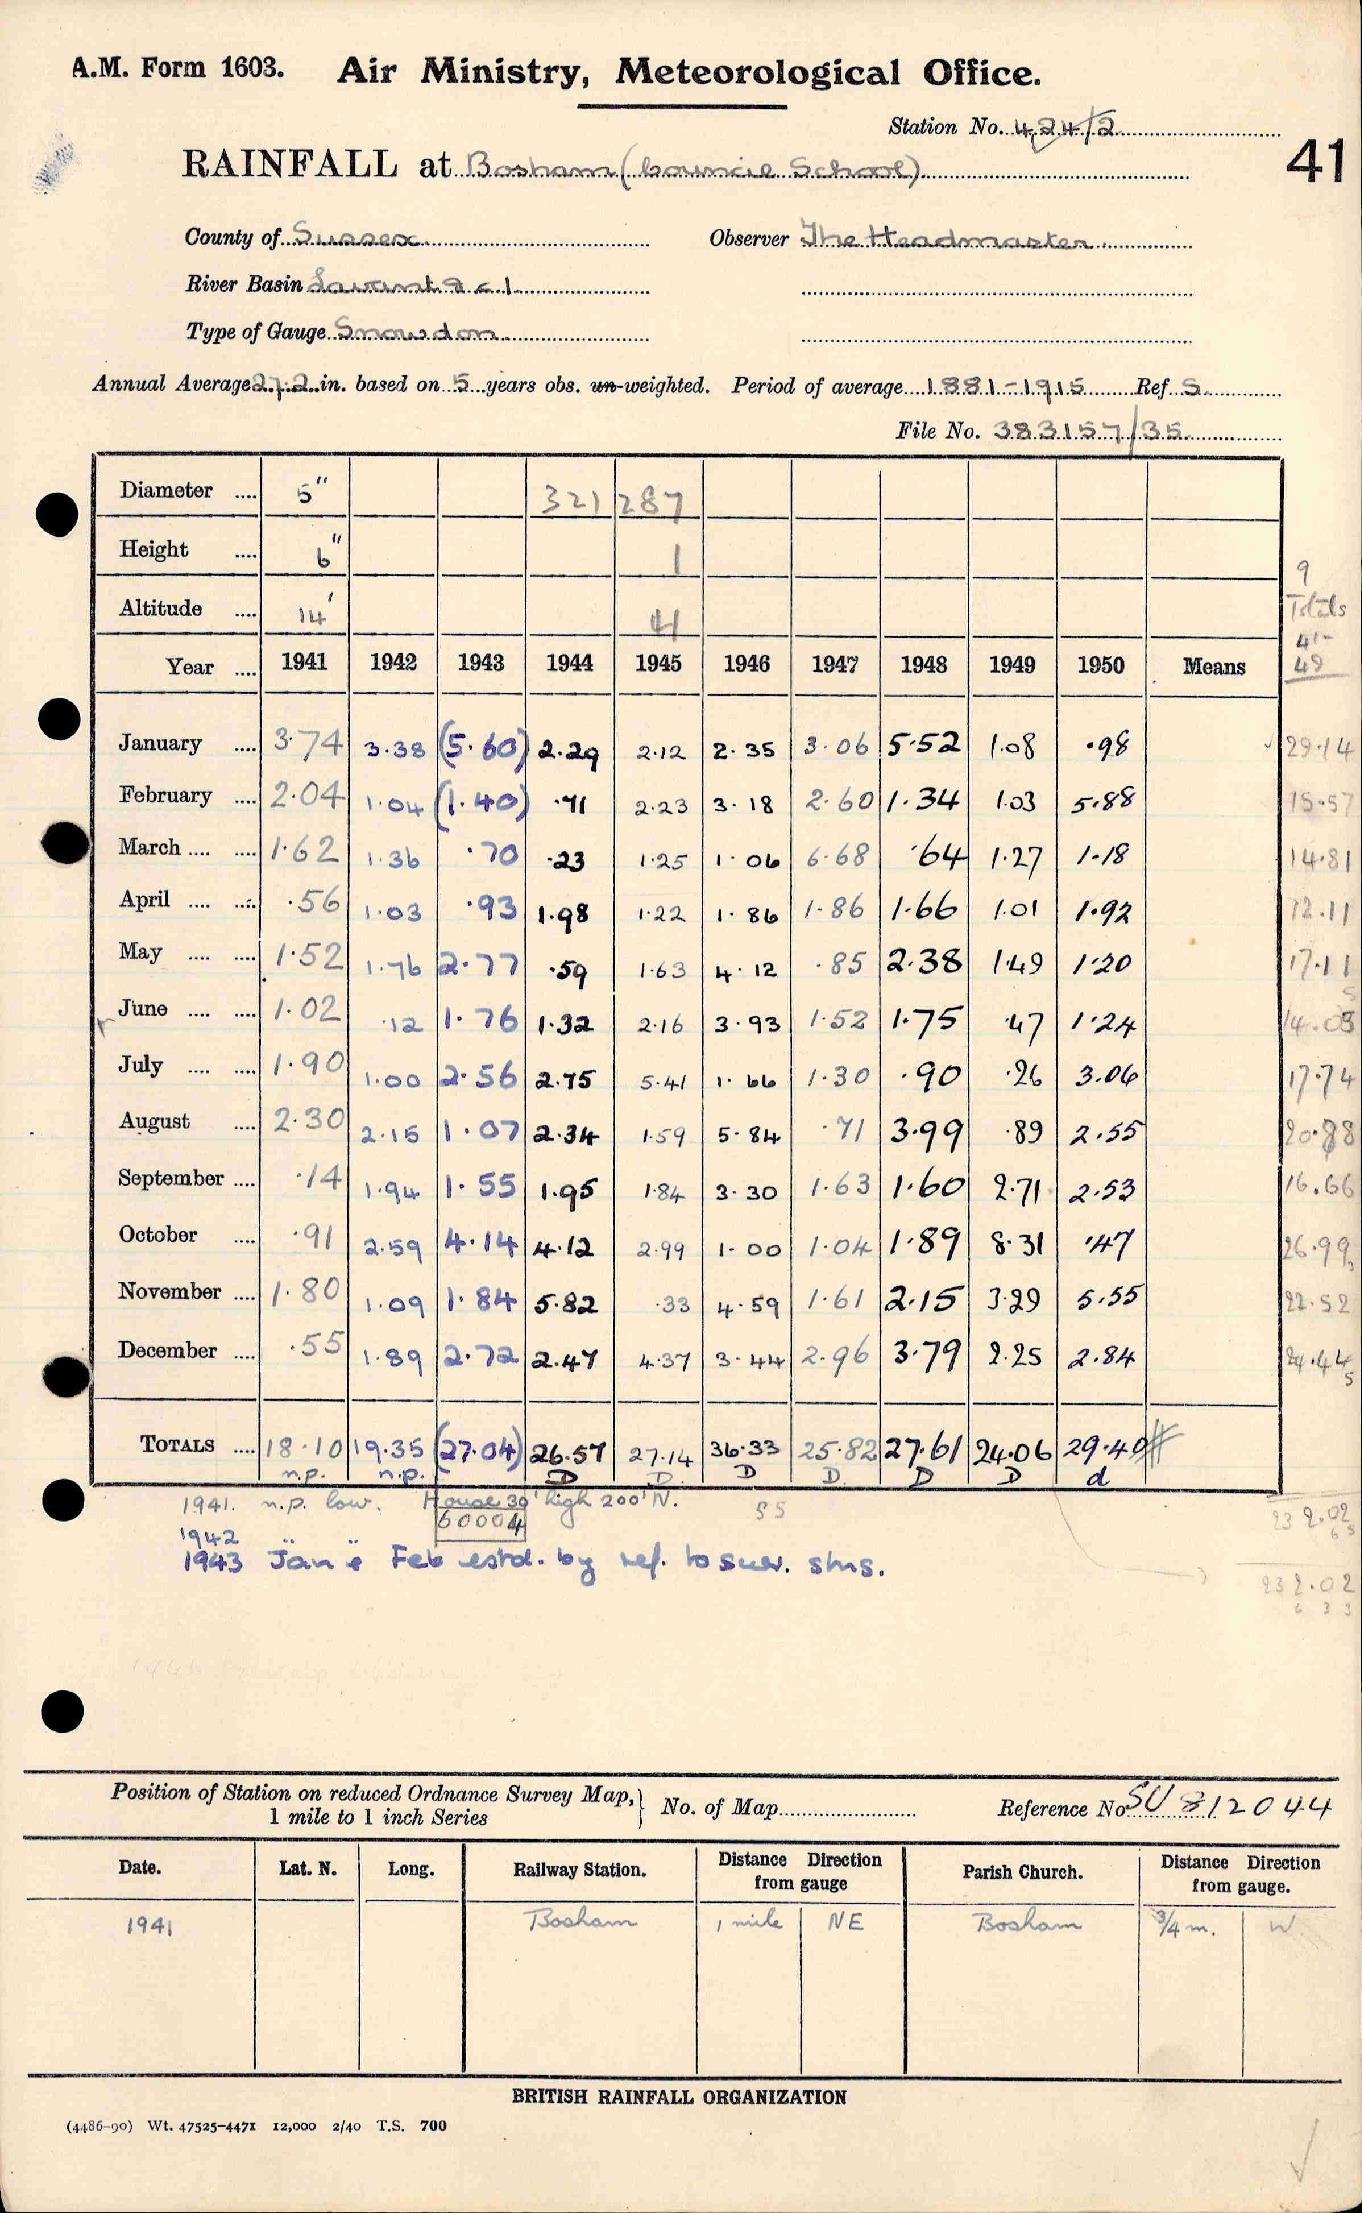 A.M. Form 1603. Air Ministry, Meteorological Office.
Station No. 424/2
41
RAINFALL at Bosham (Council School)
County of Sussex Observer The Headmaster
River Basin Lavant &c 1
Type of Gauge Snowdon
Annual Average 27.2 in. based on 5 years obs. un-weighted. Period of average 1881-1915 Ref S.
File No. 383157/35
Diameter .... 5" 321 287
Height .... 6" 1
Altitude .... 14' 41
9 Totals 41- 49
Year .... 1941 1942 1943 1944 1945 1946 1947 1948 1949 1950 Means
January .... 3.74 3.38 (5.60) 2.29 2.12 2.35 3.06 5.52 1.08 .98 29.14
February .... 2.04 1.04 (1.40) .71 2.23 3.18 2.60 1.34 1.03 5.88 15.57
March .... .... 1.62 1.36 .70 .23 1.25 1.06 6.68 .64 1.27 1.18 14.81
April .... .... .56 1.03 .93 1.98 1.22 1.86 1.86 1.66 1.01 1.92 12.11
May .... .... 1.52 1.76 2.77 .59 1.63 4.12 .85 2.38 1.49 1.20 17.11
June .... .... 1.02 .12 1.76 1.32 2.16 3.93 1.52 1.75 .47 1.24 14.05
July .... .... 1.90 1.00 2.56 2.75 5.41 1.66 1.30 .90 .26 3.06 17.74
August .... 2.30 2.15 1.07 2.34 1.59 5.84 .71 3.99 .89 2.55 20.88
September .... .14 1.94 1.55 1.95 1.84 3.30 1.63 1.60 2.71 2.53 16.66
October .... .91 2.59 4.14 4.12 2.99 1.00 1.04 1.89 8.31 .47 26.99
November .... 1.80 1.09 1.84 5.82 .33 4.59 1.61 2.15 3.29 5.55 22.52
December .... .55 1.89 2.72 2.47 4.37 3.44 2.96 3.79 2.25 2.84 24.44
TOTALS .... 18.10 19.35 (27.04) 26.57 27.14 36.33 25.82 27.61 24.06 29.40
n.p. n.p. D D. D D. D D d
1941. n.p. low. House 30' high 200' N. 55
60004
232.02
1942
1943 Jan & Feb estd. by ref. to surr. stns.
232.02
Position of Station on reduced Ordnance Survey Map, 1 mile to 1 inch Series No. of Map Reference No SU 812044
Date. Lat. N. Long. Railway Station. Distance Direction from gauge Parish Church. Distance Direction from gauge.
1941 Bosham 1 mile NE Bosham 3/4 m. W.
BRITISH RAINFALL ORGANIZATION
(4486-90) Wt. 47525-4471 12,000 2/40 T.S. 700